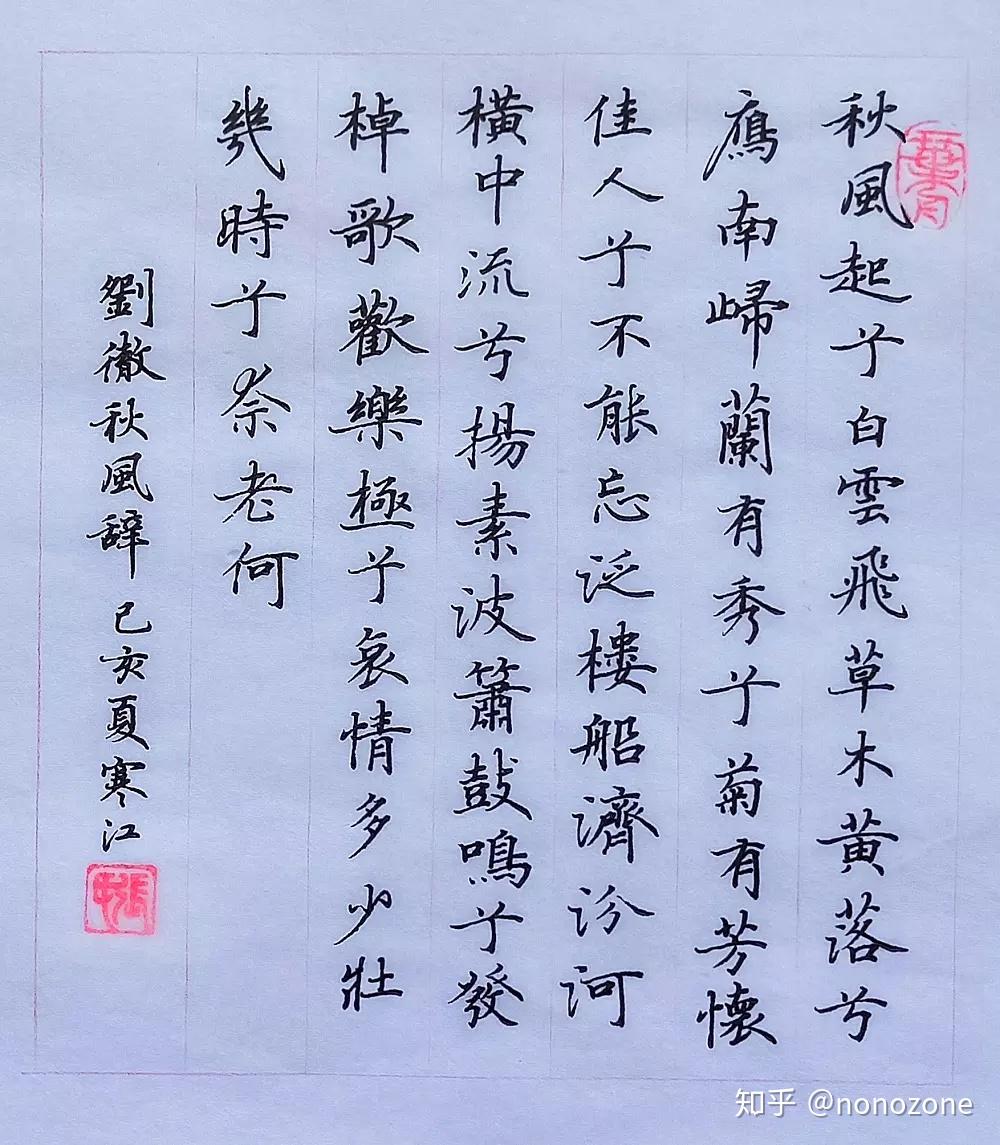 秋風起兮白雲飛草木黃落兮
鴈南歸蘭有秀兮菊有芳懷
佳人兮不能忘泛樓船濟汾河
橫中流兮揚素波簫鼓鳴兮發
棹歌歡樂極兮哀情多少壯
幾時兮奈老何
劉徹秋風辭 己亥夏寒江
知乎 @nonozone